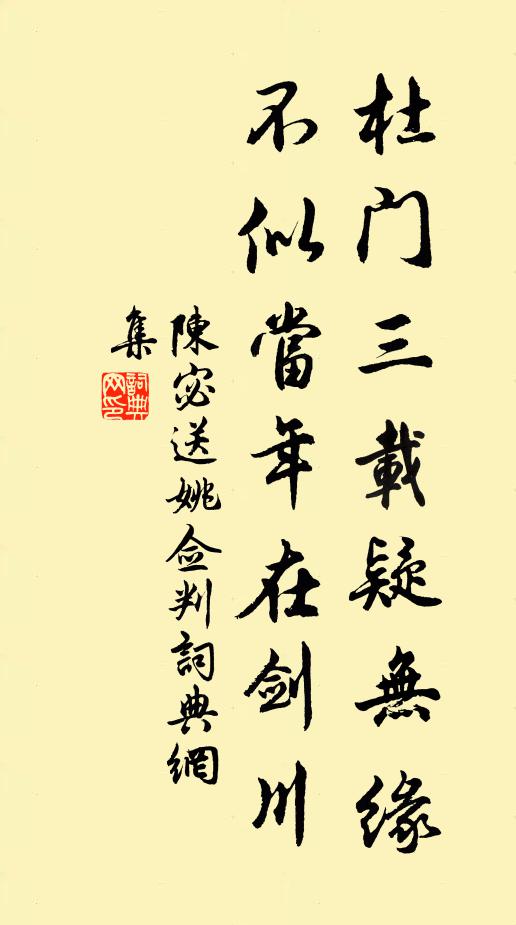 杜門三載疑無緣
不似當年在剑川
陳宓送姚僉判詞典網
集
詞典
网印